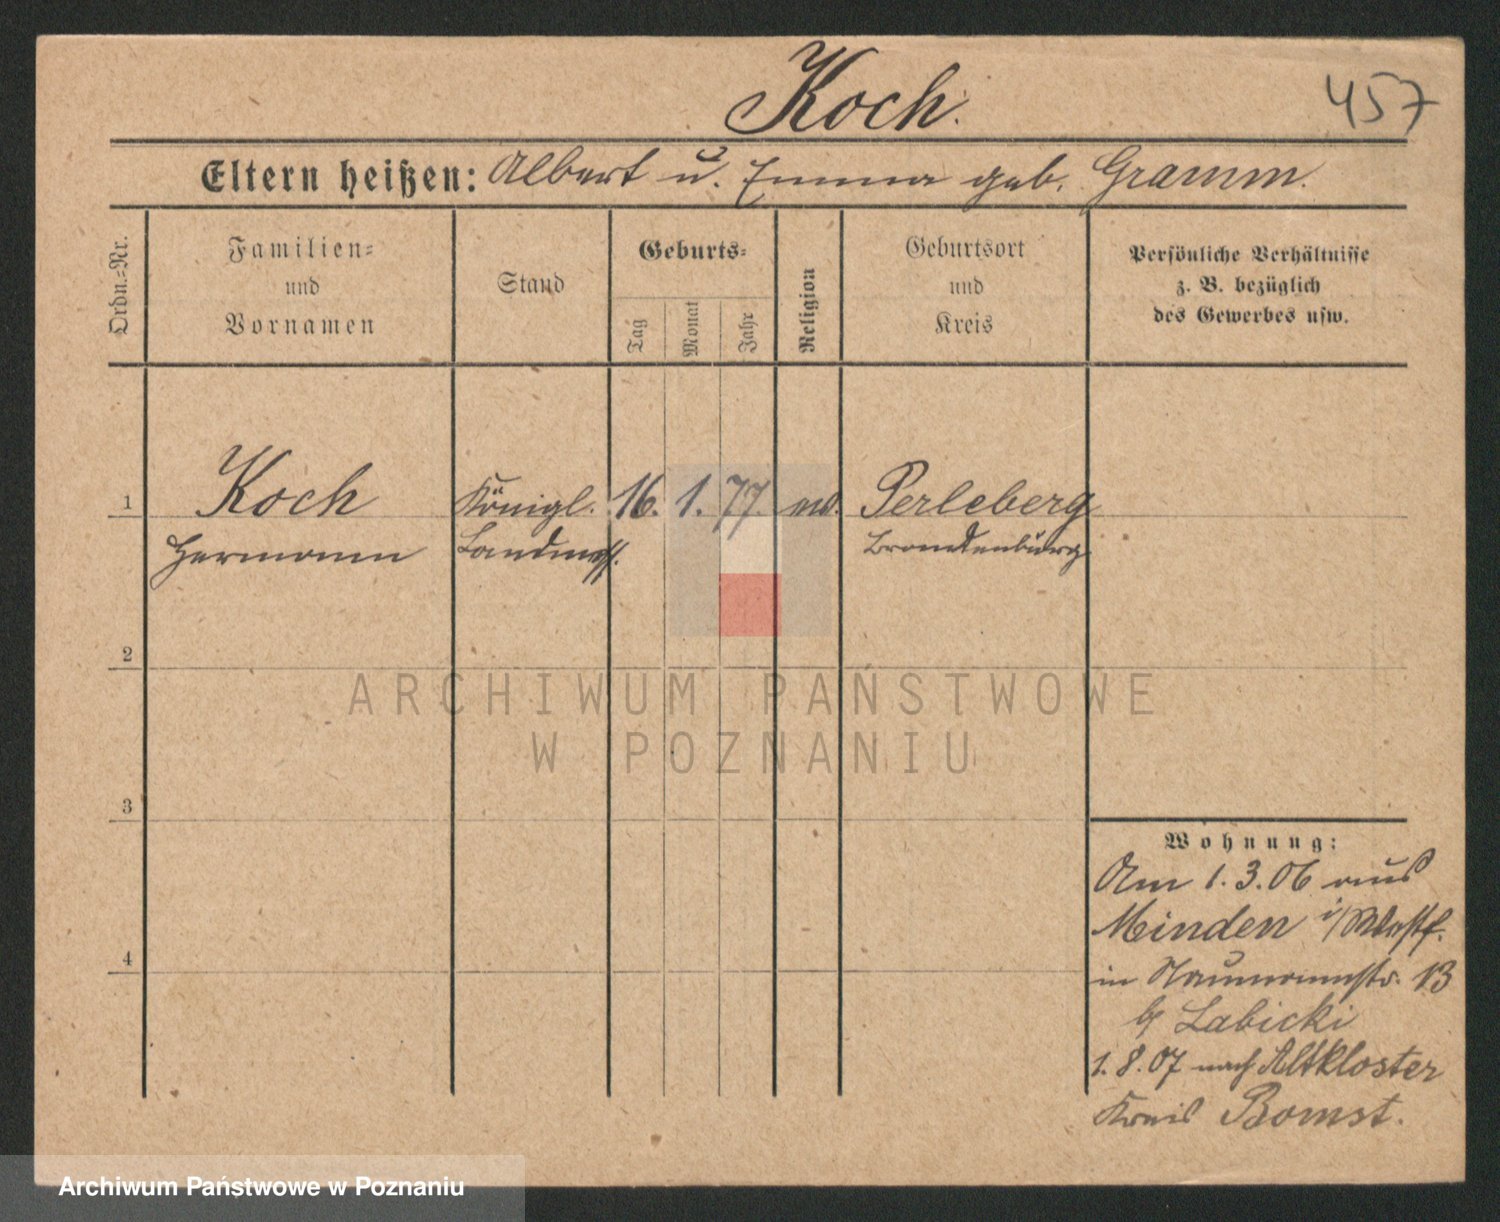 Koch.
457
Eltern heißen: Albert u. Emma geb. Gramm.
Ordn.=Nr.
Familien=
und
Vornamen
Stand
Geburts=
Tag
Monat
Jahr
Religion
Geburtsort
und
Kreis
Persönliche Verhältnisse
z. B. bezüglich
des Gewerbes usw.
1
Koch
Hermann
Königl.
Landmess.
16. 1. 77.
ev.
Perleberg
Brandenburg
2
3
4
Wohnung:
Am 1.3.06 aus
Minden i/Westf.
in Naumannstr. 13
b/ Labicki
1.8.07 nach Altkloster
Kreis Bomst.
ARCHIWUM PAŃSTWOWE
W POZNANIU
Archiwum Państwowe w Poznaniu